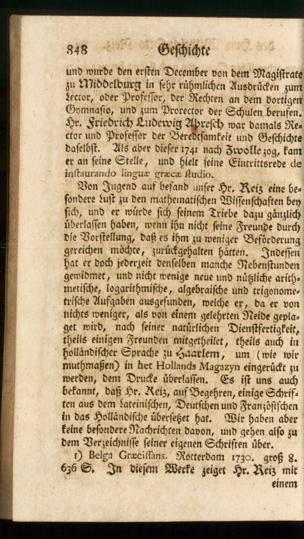 848 Geschichte
und wurde den ersten December von dem Magistrate
zu Middelburg in sehr rühmlichen Ausdrücken zum
Lector, oder Professor, der Rechten an dem dortigen
Gymnasio, und zum Prorector der Schulen berufen.
Hr. Friedrich Ludwig Abresch war damals Re-
ctor und Professor der Beredtsamkeit und Geschichte
daselbst. Als aber dieser 1741 nach Zwolle zog, kam
er an seine Stelle, und hielt seine Eintrittsrede de
instaurando linguæ græcæ studio.
Von Jugend auf befand unser Hr. Reiz eine be-
sondere Lust zu den mathematischen Wissenschaften bey
sich, und er würde sich seinem Triebe dazu gänzlich
überlassen haben, wenn ihn nicht seine Freunde durch
die Vorstellung, daß es ihm zu weniger Beförderung
gereichen möchte, zurückgehalten hätten. Indessen
hat er doch jederzeit denselben manche Nebenstunden
gewidmet, und nicht wenige neue und nützliche arith-
metische, logarithmische, algebraische und trigonome-
trische Aufgaben ausgefunden, welche er, da er von
nichts weniger, als von einem gelehrten Neide gepla-
get wird, nach seiner natürlichen Dienstfertigkeit,
theils einigen Freunden mitgetheilet, theils auch in
holländischer Sprache zu Haarlem, um (wie wir
muthmaßen) in het Hollands Magazyn eingerückt zu
werden, dem Drucke überlassen. Es ist uns auch
bekannt, daß Hr. Reiz, auf Begehren, einige Schrif-
ten aus dem Lateinischen, Deutschen und Französischen
in das Holländische übersetzet hat. Wir haben aber
keine besondere Nachrichten davon, und gehen also zu
dem Verzeichnisse seiner eigenen Schriften über.
1) Belga Græcissans. Rotterdam 1730. groß 8.
636 S. In diesem Werke zeiget Hr. Reiz mit
einem